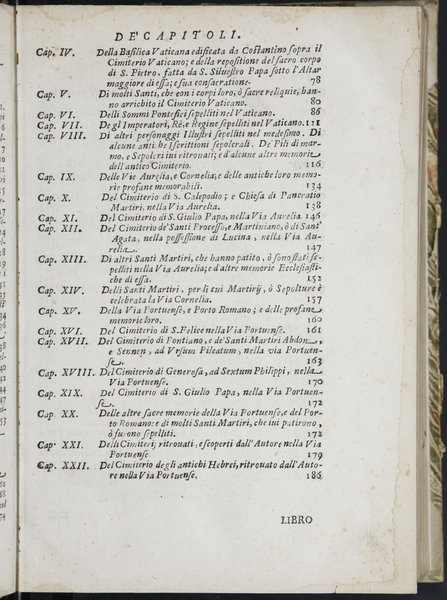 DE'CAPITOLI.
Cap. IV. Della Basilica Vaticana edificata da Costantino sopra il
Cimiterio Vaticano; e della repositione del sacro corpo
di S. Pietro, fatta da S. Siluestro Papa sotto l'Altar
maggiore di essa; e sua consacratione. 78
Cap. V. Di molti Santi, che con i corpi loro, ò sacre reliquie, han-
no arrichito il Cimiterio Vaticano. 80
Cap. VI. Delli Sommi Pontefici sepelliti nel Vaticano. 86
Cap. VII. De gl'Imperatori, Rè, e Regine sepelliti nel Vaticano. 111
Cap. VIII. Di altri personaggi Illustri sepelliti nel medesimo. Di
alcune antiche Iscrittioni sepolcrali. De'Pili di mar-
mo, e Sepolcri iui ritrouati; e d'alcune altre memorie
dell'antico Cimiterio. 116
Cap. IX. Delle Vie Aurelia, e Cornelia; e delle antiche loro memo-
rie profane memorabili. 134
Cap. X. Del Cimiterio di S. Calepodio; e Chiesa di Pancratio
Martiri, nella Via Aurelia. 138
Cap. XI. Del Cimiterio di S. Giulio Papa, nella Via Aurelia. 146
Cap. XII. Del Cimiterio de' Santi Processo, e Martiniano, ò di Sant'
Agata, nella possessione di Lucina, nella Via Au-
relia. 147
Cap. XIII. Di altri Santi Martiri, che hanno patito, ò sono stati se-
pelliti nella Via Aurelia; e d'altre memorie Ecclesiasti-
che di essa. 152
Cap. XIV. Delli Santi Martiri, per li cui Martirij, ò Sepolture è
celebrata la Via Cornelia. 157
Cap. XV. Della Via Portuense, e Porto Romano; e delle profane
memorie loro. 160
Cap. XVI. Del Cimiterio di S. Felice nella Via Portuense. 161
Cap. XVII. Del Cimiterio di Pontiano, e de' Santi Martiri Abdon,
e Sennen, ad Vrsum Pileatum, nella via Portuen-
se. 163
Cap. XVIII. Del Cimiterio di Generosa, ad Sextum Philippi, nella
Via Portuense. 170
Cap. XIX. Del Cimiterio di S. Giulio Papa, nella Via Portuen-
se. 172
Cap. XX. Delle altre sacre memorie della Via Portuense, e del Por-
to Romano: e di molti Santi Martiri, che iui patirono,
ò furono sepelliti. 172
Cap. XXI. Delli Cimiterij ritrouati, e scoperti dall'Autore nella Via
Portuense. 179
Cap. XXII. Del Cimiterio degli antichi Hebrei, ritrouato dall'Auto-
re nella Via Portuense. 186
LIBRO